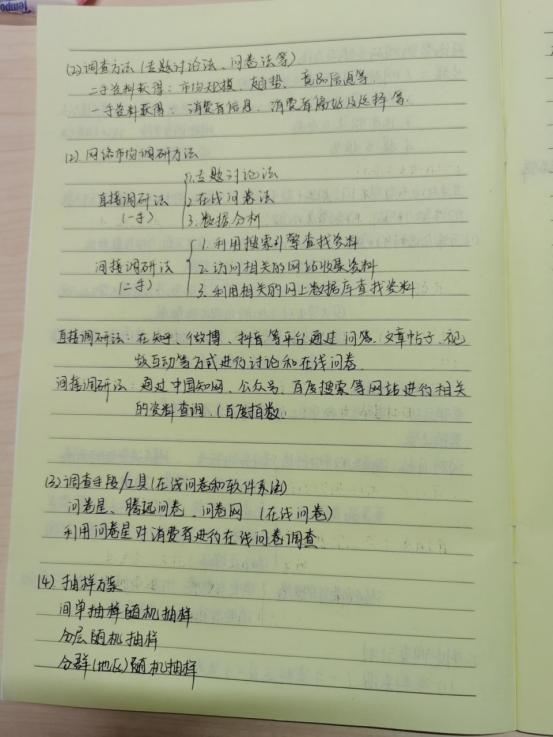 Tempo
(2)调查方法(专题讨论法、问卷法等)
二手资料获得：市场规模、趋势、竞品信息等
一手资料获得：消费者信息、消费者需求及选择等.
(2) 网络市场调研方法
直接调研法
(一手)
1.专题讨论法
2.在线问卷法
3.数据分析
间接调研法
(二手)
1.利用搜索引擎查找资料
2.访问相关的网站收集资料
3.利用相关的网上数据库查找资料
直接调研法：在知乎、微博、抖音等平台通过问答、文章帖子、视
频互动等方式进行讨论和在线问卷.
间接调研法：通过中国知网、公众号、百度搜索等网站进行相关
的资料查询.(百度指数)
(3)调查手段/工具(在线问卷和软件系统)
问卷星、腾讯问卷、问卷网 (在线问卷)
利用问卷星对消费者进行在线问卷调查
(4) 抽样方案
间单抽样随机抽样
分层随机抽样
分群(地区)随机抽样